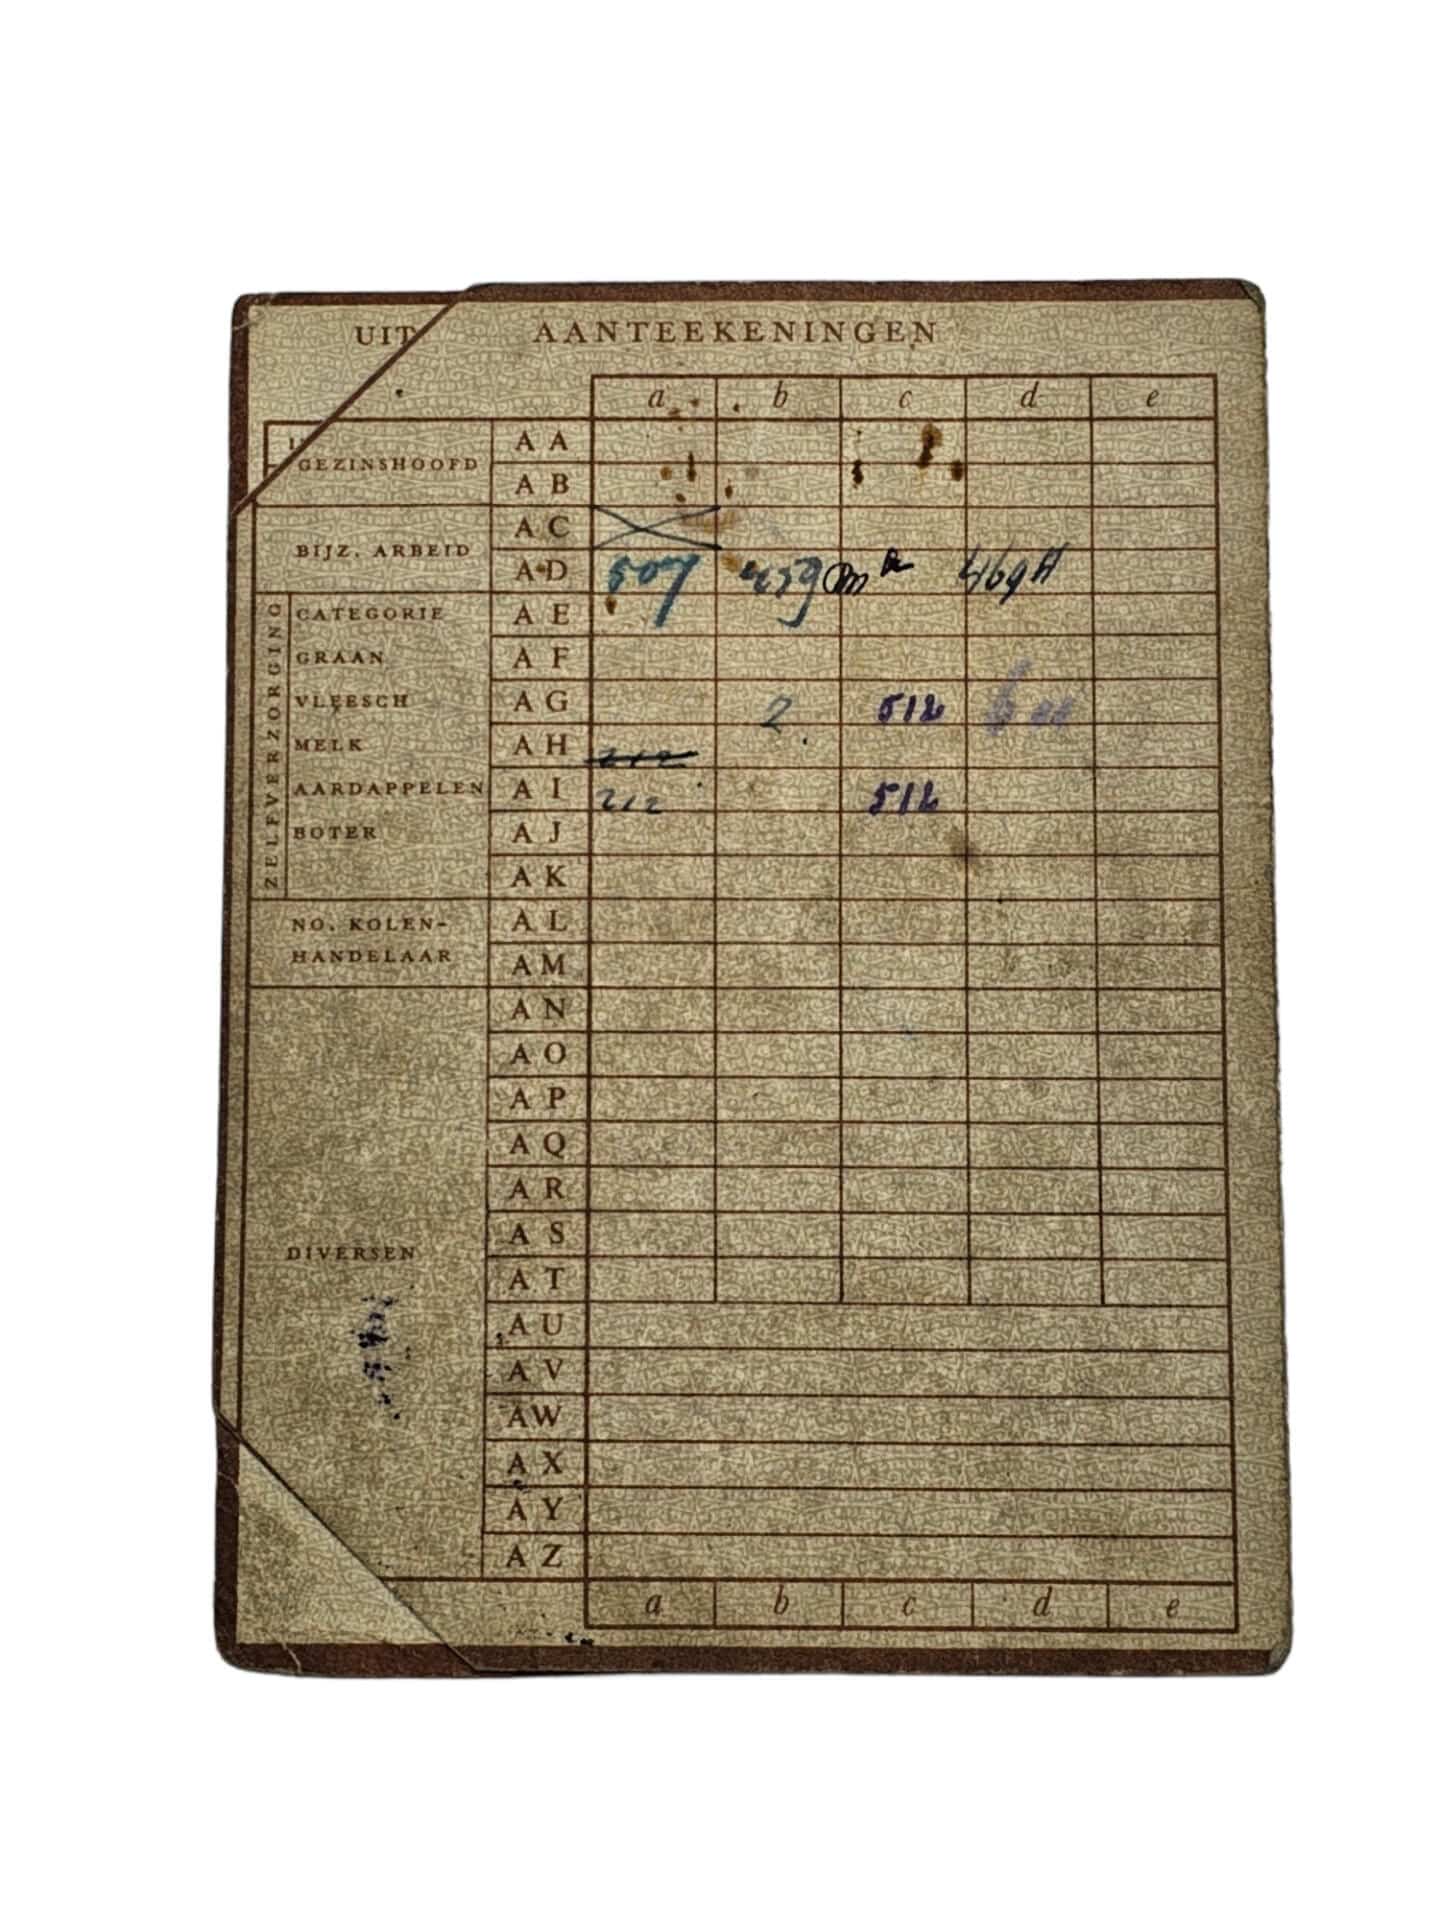 UIT AANTEEKENINGEN
a b c d e
GEZINSHOOFD
A A
A B
BIJZ. ARBEID
A C
A D
ZELFVERZORGING
CATEGORIE A E
GRAAN A F
VLEESCH A G 2 512
MELK A H 212
AARDAPPELEN A I 212 512
BOTER A J
A K
NO. KOLEN- A L
HANDELAAR A M
A N
A O
A P
A Q
A R
A S
DIVERSEN
A T
A U
A V
A W
A X
A Y
A Z
a b c d e